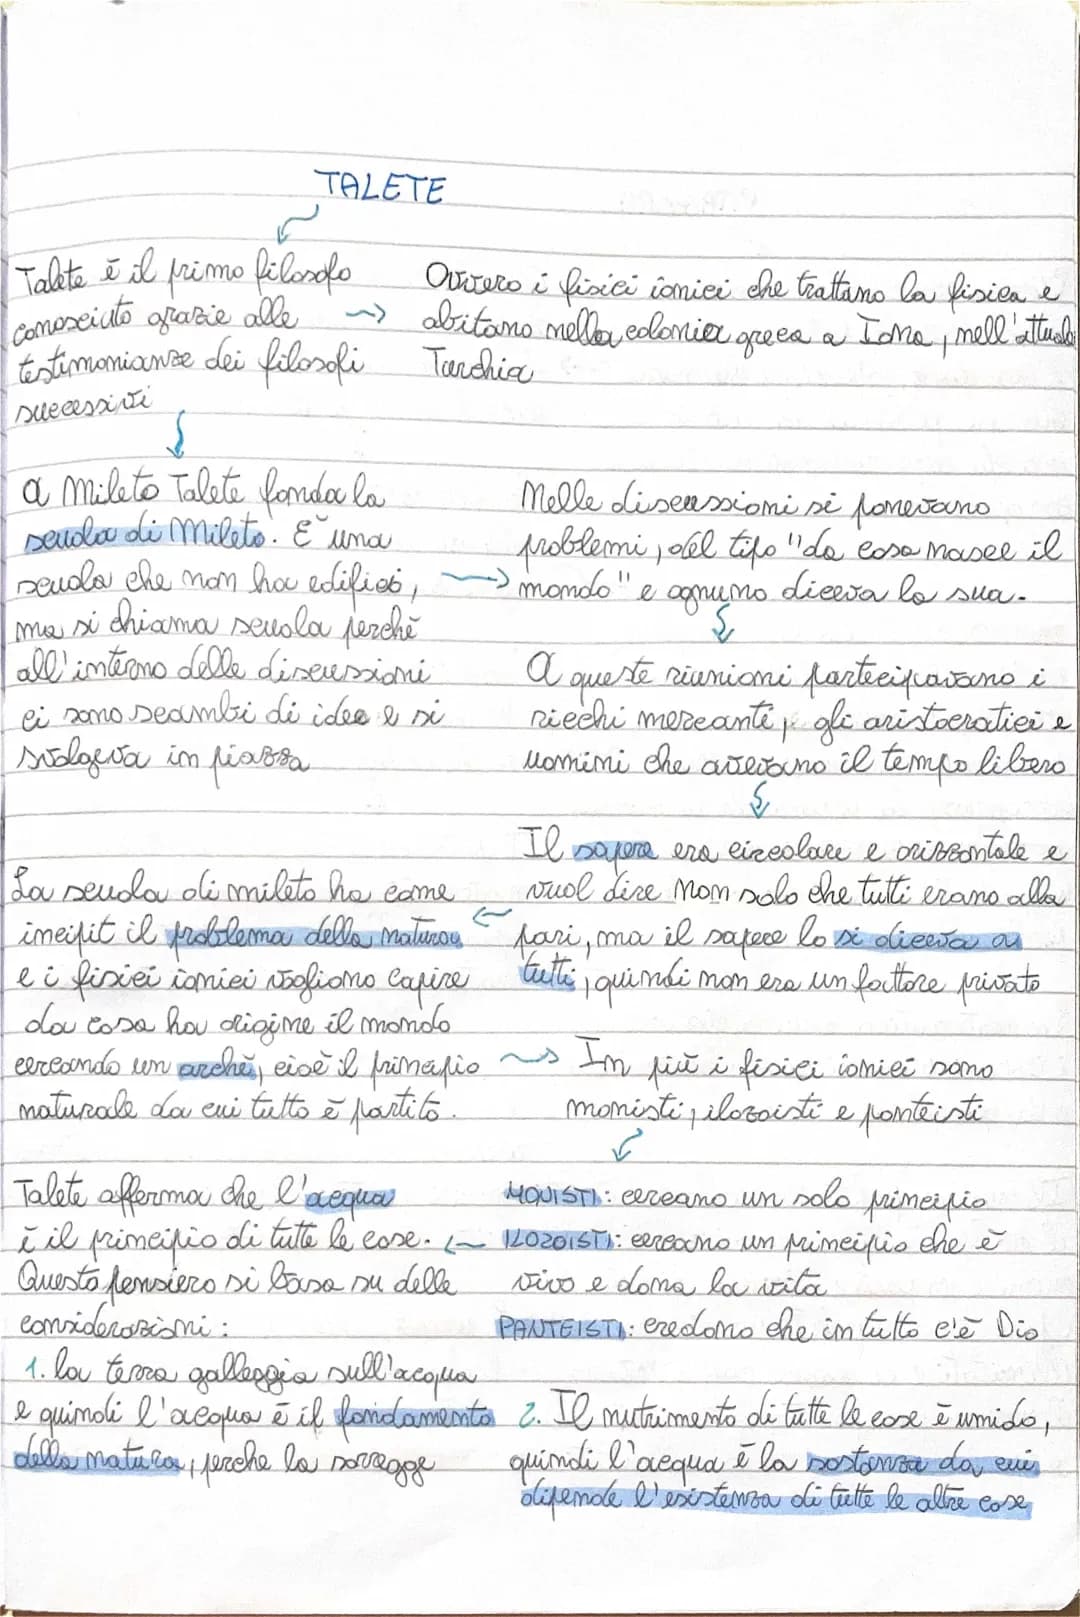 TALETE
Talete è il primo filosofo
conosciuto grazie alle
testimonianze dei filosofi
successivi
Ovvero i fisici ionici che trattano la fisica e
abitano nella colonia greca a Iona, nell'attuale
Turchia
A Mileto Talete fonda la
scuola di Mileto. È una
scuola che non ha edifici,
ma si chiama scuola perchè
all'interno delle discussioni
ci sono scambi di idee e si
svolgeva in piazza
Nelle discussioni si ponevano
problemi, del tipo "da cosa nasce il
mondo" e ognuno diceva la sua.
A queste riunioni partecipavano i
ricchi mercanti, gli aristocratici e
uomini che avevano il tempo libero
Il sapere era circolare e orizzontale e
vuol dire non solo che tutti erano alla
pari, ma il sapere lo si diceva a
tutti, quindi non era un fattore privato
La scuola di mileto ha come
incipit il problema della natura
e i fisici ionici vogliono capire
da cosa ha origine il mondo
cercando un archè, cioè il principio
naturale da cui tutto è partito.
In più i fisici ionici sono
monisti, ilozoisti e panteisti
MONISTI: cercano un solo principio
ILOZOISTI: cercano un principio che è
vivo e dona la vita
PANTEISTI: credono che in tutto c'è Dio
Talete afferma che l'acqua
è il principio di tutte le cose.
Questo pensiero si basa su delle
considerazioni:
1. la terra galleggia sull'acqua
e quindi l'acqua è il fondamento
della natura, perche la sorregge
2. Il nutrimento di tutte le cose è umido,
quindi l'acqua è la sostanza da cui
dipende l'esistenza di tutte le altre cose